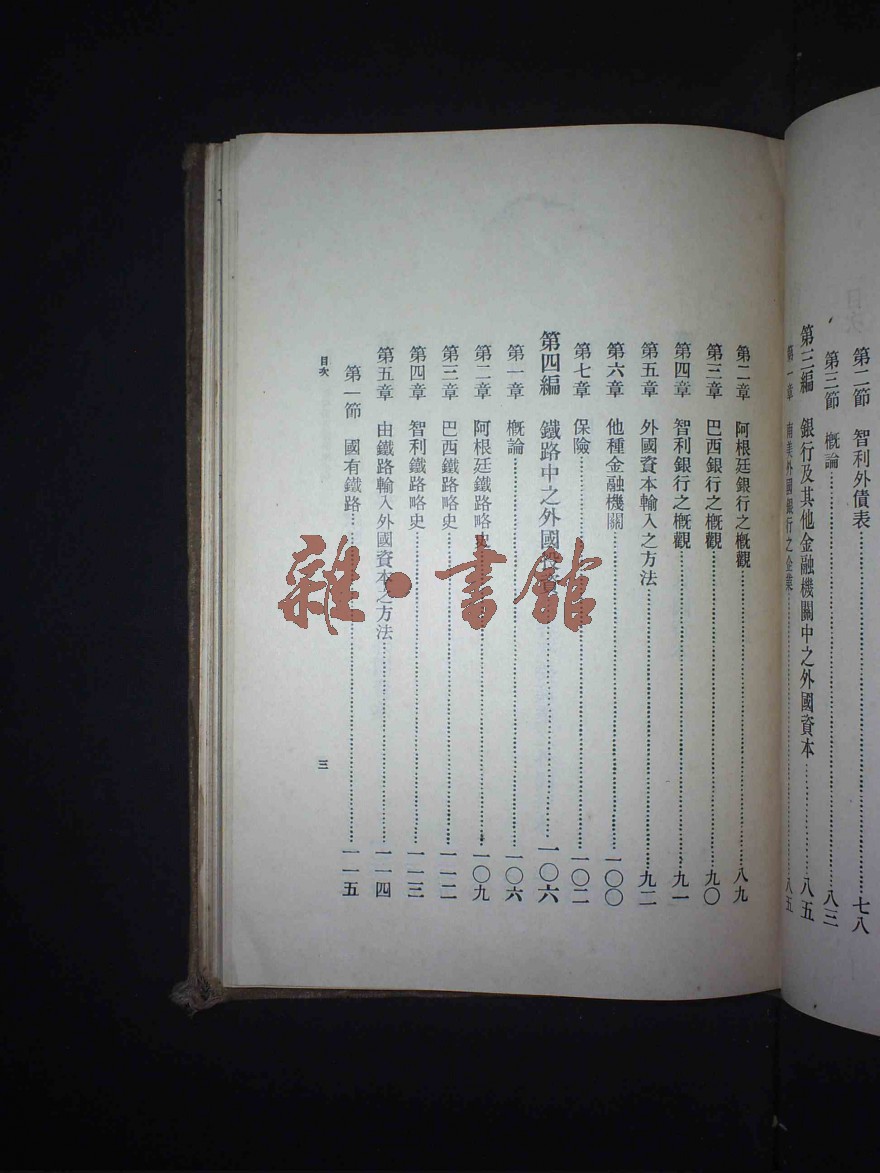 第二節　智利外債表………七八
第三節　概論………八三
第三編　銀行及其他金融機關中之外國資本………八五
第一章　南美外國銀行之企業………八五
第二章　阿根廷銀行之概觀………八九
第三章　巴西銀行之概觀………九〇
第四章　智利銀行之概觀………九一
第五章　外國資本輸入之方法………九二
第六章　他種金融機關………一〇〇
第七章　保險………一〇二
第四編　鐵路中之外國………一〇六
第一章　概論………一〇六
第二章　阿根廷鐵路略史………一〇九
第三章　巴西鐵路略史………一一二
第四章　智利鐵路略史………一一三
第五章　由鐵路輸入外國資本之方法………一一四
第一節　國有鐵路………一一五
目次
三
雜·書館